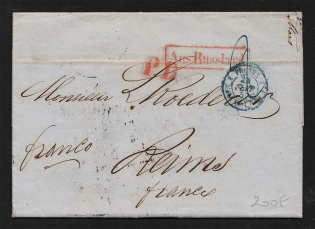 Aus Russland
P.D.
Monsieur L Roederer
franco
Reims
france
200F